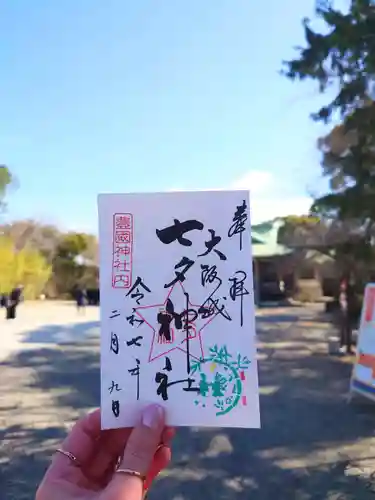 奉拝
大阪城
七夕神社
豊國神社内
令和七年
二月九日